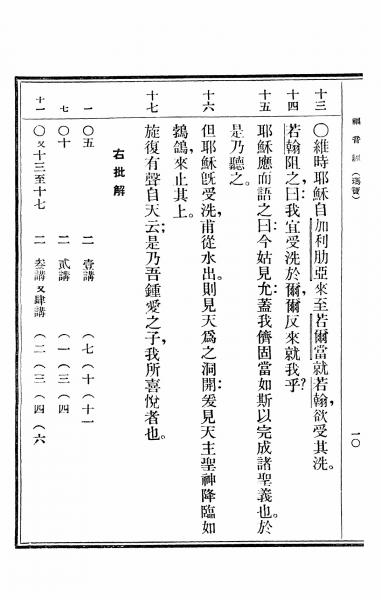 福音經 (瑪竇) 一〇
十三 〇維時耶穌自加利肋亞來至若爾當就若翰,欲受其洗。
十四 若翰阻之曰:我宜受洗於爾,爾反來就我乎?
十五 耶穌應而語之曰:今姑見允:蓋我儕固當如斯以完成諸聖義也。於
是乃聽之。
十六 但耶穌旣受洗,甫從水出。則見天爲之洞開:爰見天主聖神降臨如
鵓鴿來止其上。
十七 旋復有聲自天云;是乃吾鍾愛之子,我所喜悅者也。
右批解
一 〇五 二 壹講 (七 (十 (十一
七 〇十 二 貳講 (一 (三 (四
十一 〇又十三至十七 二 叁講又肆講 (二 (三 (四 (六